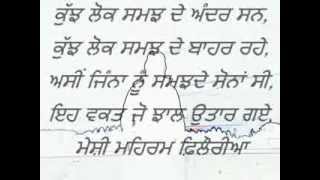 ਕੁੱਝ ਲੋਕ ਸਮਝ ਦੇ ਅੰਦਰ ਸਨ,
ਕੁੱਝ ਲੋਕ ਸਮਝ ਦੇ ਬਾਹਰ ਰਹੇ,
ਅਸੀਂ ਜਿੰਨਾ ਨੂੰ ਸਮਝਦੇ ਸੋਨਾਂ ਸੀ,
ਇਹ ਵਕਤ ਜੋ ਝਾਲ ਉਤਾਰ ਗਏ
ਮੇਸ਼ੀ ਮਹਿਰਮ ਫ਼ਿਲੌਰੀਆ